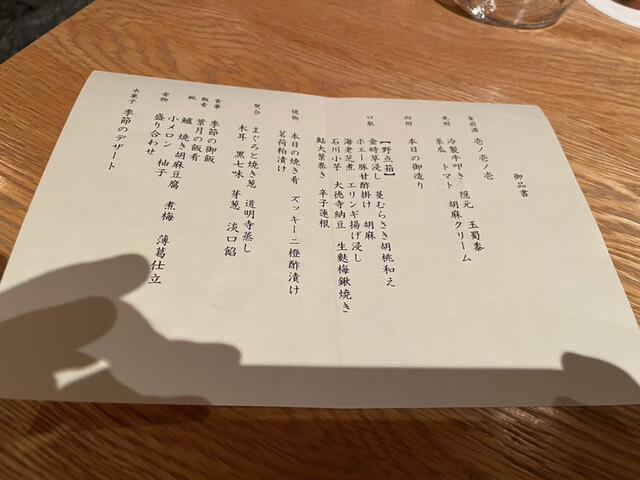 御品書
食前酒 壱ノ壱ノ壱
先附 冷製牛叩き 隠元 玉蜀黍
茶瓜 トマト 胡麻クリーム
向附 本日の御造り
口取 【野点箱】
金時草浸し 蔓むらさき胡桃和え
ホエー豚甘酢掛け 胡麻
海老芝煮 エリンギ揚げ浸し
石川小芋 大徳寺納豆 生麩梅鍬焼き
鮎大葉巻き 辛子蓮根
焼物 本日の焼き肴 ズッキーニ橙酢漬け
茗荷粕漬け
焚合 まぐろと焼き葱 道明寺蒸し
木耳 黒七味 芽葱 淡口餡
食事 季節の御飯
飯肴 葉月の飯肴
椀 鱸 焼き胡麻豆腐 煮梅 薄葛仕立
香物 小メロン 柚子
盛り合わせ
水菓子 季節のデザート